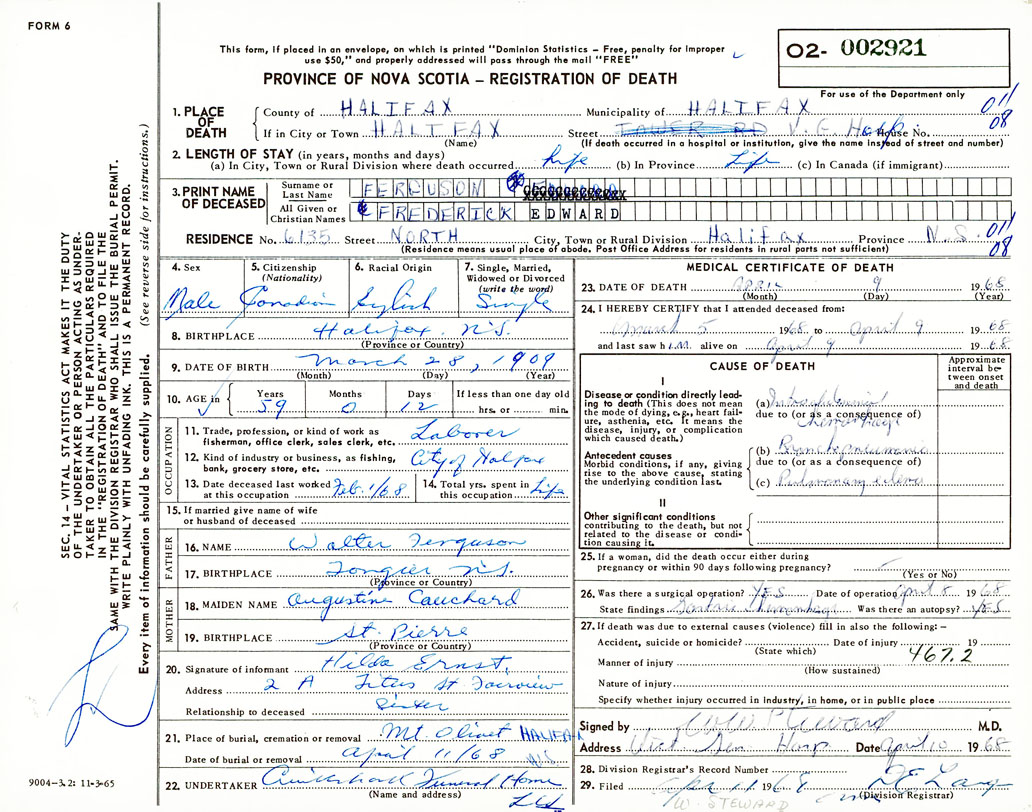 FORM 6
This form, if placed in an envelope, on which is printed "Dominion Statistics – Free, penalty for improper
use $50," and properly addressed will pass through the mail "FREE"
PROVINCE OF NOVA SCOTIA – REGISTRATION OF DEATH
02- 002921
For use of the Department only
SEC. 14 – VITAL STATISTICS ACT MAKES IT THE DUTY
OF THE UNDERTAKER OR PERSON ACTING AS UNDER-
TAKER TO OBTAIN ALL THE PARTICULARS REQUIRED
IN THE "REGISTRATION OF DEATH" AND TO FILE THE
SAME WITH THE DIVISION REGISTRAR WHO SHALL ISSUE THE BURIAL PERMIT.
WRITE PLAINLY WITH UNFADING INK. THIS IS A PERMANENT RECORD.
Every item of information should be carefully supplied. (See reverse side for instructions.)
1. PLACE OF DEATH County of HALIFAX Municipality of HALIFAX 011
If in City or Town HALIFAX Street V. G. Hosp House No. 08
(Name) (If death occurred in a hospital or institution, give the name instead of street and number)
2. LENGTH OF STAY (in years, months and days)
(a) In City, Town or Rural Division where death occurred Life (b) In Province Life (c) In Canada (if immigrant)
3. PRINT NAME OF DECEASED Surname or Last Name FERGUSON
All Given or Christian Names FREDERICK EDWARD
RESIDENCE No. 6135 Street NORTH City, Town or Rural Division Halifax Province N.S. 011
08
(Residence means usual place of abode. Post Office Address for residents in rural parts not sufficient)
4. Sex 5. Citizenship (Nationality) 6. Racial Origin 7. Single, Married, Widowed or Divorced (write the word)
Male Canadian Single
8. BIRTHPLACE Halifax N.S.
(Province or Country)
9. DATE OF BIRTH March 28, 1909
(Month) (Day) (Year)
10. AGE in Years Months Days If less than one day old
59 0 12 hrs. or min.
OCCUPATION
11. Trade, profession, or kind of work as fisherman, office clerk, sales clerk, etc. Laborer
12. Kind of industry or business, as fishing, bank, grocery store, etc. City of Halifax
13. Date deceased last worked at this occupation Feb. 1/68 14. Total yrs. spent in this occupation Life
15. If married give name of wife or husband of deceased
FATHER
16. NAME Walter Ferguson
17. BIRTHPLACE Tangier N.S.
(Province or Country)
MOTHER
18. MAIDEN NAME Augustine
19. BIRTHPLACE St. Pierre
(Province or Country)
20. Signature of informant Hilda Ernst.
Address 2 A Titus St Fairview
Relationship to deceased Sister
21. Place of burial, cremation or removal Mt Olivet HALIFAX
Date of burial or removal April 11/68 N.S.
22. UNDERTAKER Cruikshank Funeral Home
(Name and address) Ltd
9004–3.2: 11-3-65
MEDICAL CERTIFICATE OF DEATH
23. DATE OF DEATH APRIL 9 1968
(Month) (Day) (Year)
24. I HEREBY CERTIFY that I attended deceased from:
March 5 1968 to April 9 1968
and last saw him alive on April 9 1968
CAUSE OF DEATH
Approximate interval between onset and death
I
Disease or condition directly leading to death (This does not mean the mode of dying, e.g., heart failure, asthenia, etc. It means the disease, injury, or complication which caused death.)
(a)
due to (or as a consequence of)
Antecedent causes
Morbid conditions, if any, giving rise to the above cause, stating the underlying condition last.
(b) Bronchopneumonia
due to (or as a consequence of)
(c) Pulmonary edema
II
Other significant conditions
contributing to the death, but not related to the disease or condition causing it.
25. If a woman, did the death occur either during
pregnancy or within 90 days following pregnancy?
(Yes or No)
26. Was there a surgical operation? YES Date of operation April 8 1968
State findings Was there an autopsy? YES
27. If death was due to external causes (violence) fill in also the following:–
Accident, suicide or homicide? Date of injury 19
(State which)
Manner of injury 467.2
(How sustained)
Nature of injury
Specify whether injury occurred in industry, in home, or in public place
Signed by M.D.
Address Vict Gen Hosp Date April 10 1968
28. Division Registrar's Record Number
29. Filed 1968
(Division Registrar)
W. STEWARD